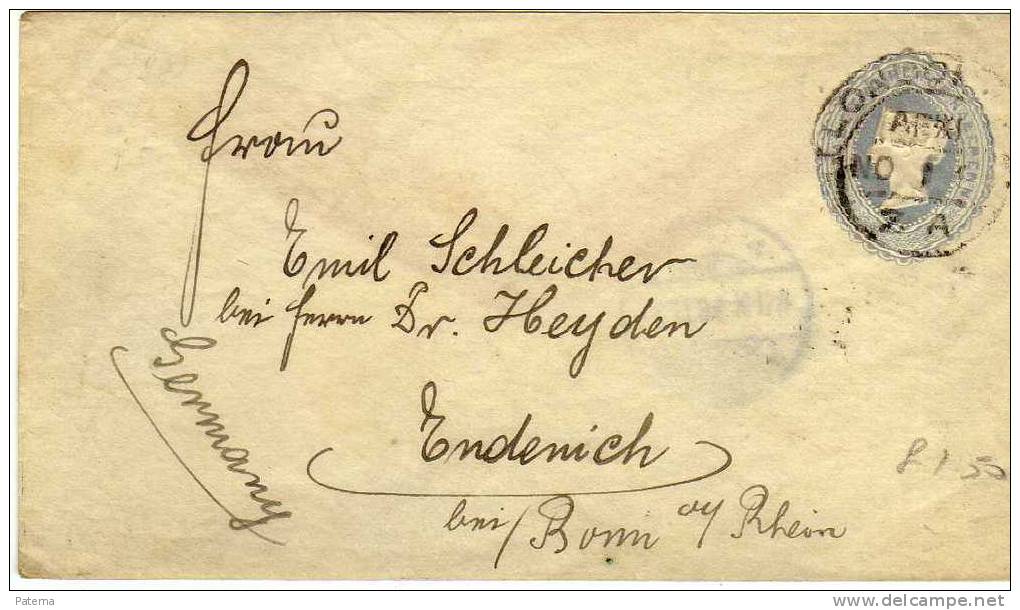 Frau
Emil Schleicher
bei Herrn Dr. Heyden
Endenich
bei/Bonn a/ Rhein
Germany
LONDON
NO 1
Paterna
delcampe.net